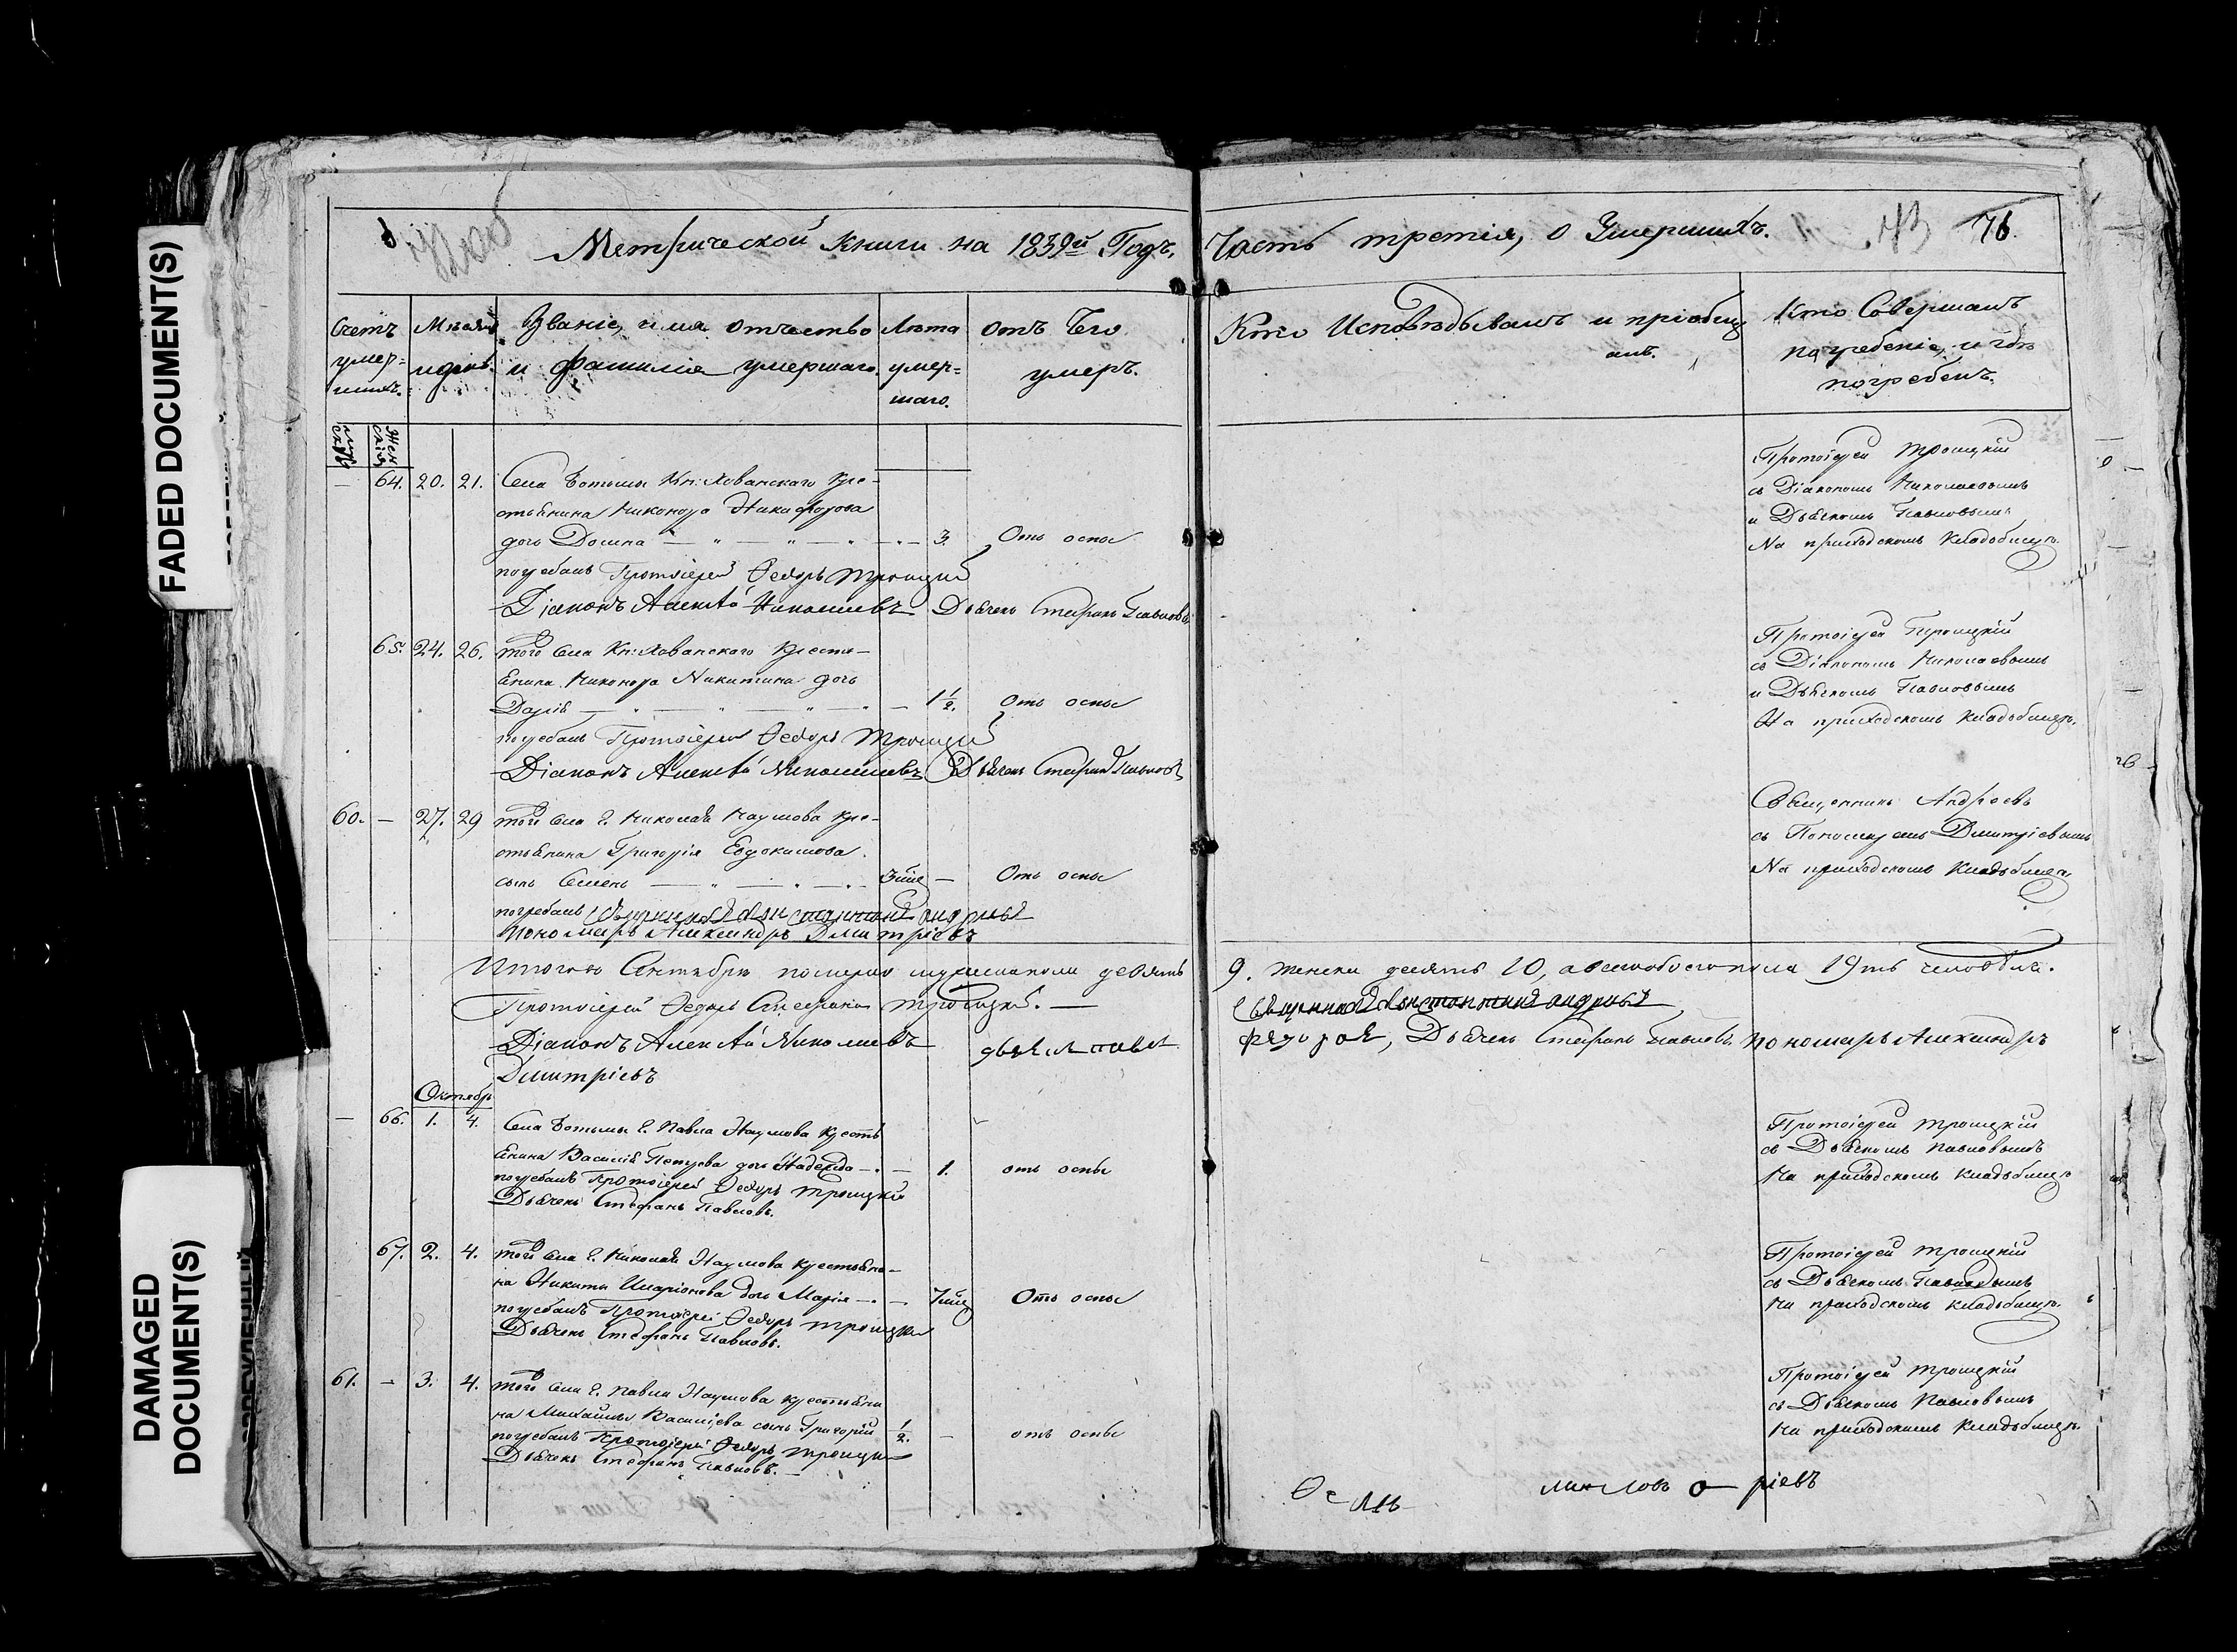 FADED DOCUMENT(S)
DAMAGED
DOCUMENT(S)
Метрической книги на 1839й Годъ,
Часть третія, о Умершихъ.
43 76.
Счетъ умер=шихъ.
Мѣсяцъ и день.
Званіе, имя отчество и фамилія умершаго.
Лѣта умер=шаго.
Отъ Чего умеръ.
Кто Исповѣдывалъ и пріобщалъ.
Кто Совершалъ погребеніе, и гдѣ погребенъ.
Муж Женскій
— 64. 20. 21. Села Ботьмы Кн: Хованскаго кре-
стьянина Никонора Никифорова
дочь Домна — 3. Отъ оспы
погребалъ Протоіерей Ѳедоръ Троицкій
Діаконъ Алексѣй Николаевъ Дьячекъ Стефанъ Павловъ
Протоіерей Троицкій
съ Діакономъ Николаевымъ
и Дьячкомъ Павловымъ
На приходскомъ кладбищѣ.
65. 24. 26. того села Кн: Хованскаго крестья-
янина Никонора Никитина дочь
Дарія — 1½. Отъ оспы
погребалъ Протоіерей Ѳедоръ Троицкій
Діаконъ Алексѣй Николаевъ Дьячекъ Стефанъ Павловъ
Протоіерей Троицкій
съ Діакономъ Николаевымъ
и Дьячкомъ Павловымъ
На приходскомъ кладбищѣ.
60. — 27. 29 того села Г. Николая Наумова кре-
стьянина Григорія Евдокимова
сынъ Семенъ — Отъ оспы
погребалъ священникъ Константинъ Андреевъ
Пономарь Александръ Дмитріевъ
Священникъ Андреевъ
съ Пономаремъ Дмитріевымъ
На приходскомъ кладбищѣ
Итого въ Сентябрѣ померло мужеска пола девять 9. женска десять 10, а всего обоего пола 19ть человѣкъ.
Протоіерей Ѳедоръ Стефановъ Троицкій. —
Священникъ Константинъ Андреевъ
Діаконъ Алексѣй Николаевъ Федоров, Дьячекъ Стефанъ Павловъ, Пономарь Александръ
Дмитріевъ
Октябрь
— 66. 1. 4. Села Ботьмы Г. Павла Наумова кресть
янина Василія Петрова дочь Надежда — 1. отъ оспы
погребалъ Протоіерей Ѳедоръ Троицкій
Дьячекъ Стефанъ Павловъ.
Протоіерей Троицкій
съ Дьячкомъ Павловымъ
На приходскомъ кладбищѣ
67. 2. 4. того села Г. Николая Наумова крестьяни-
на Никиты Иларіонова дочь Марія — Отъ оспы
погребалъ Протоіерей Ѳедоръ Троицкій
Дьячекъ Стефанъ Павловъ.
Протоіерей Троицкій
съ Дьячкомъ Павловымъ
На приходскомъ кладбищѣ.
61. — 3. 4. того села Г. Павла Наумова крестьяни
на Михайлы Васильева сынъ Григорій ½. — отъ оспы
погребалъ Протоіерей Ѳедоръ Троицкій
Дьячекъ Стефанъ Павловъ. —
Протоіерей Троицкій
съ Дьячкомъ Павловымъ
На приходскомъ кладбищѣ.
ріевъ